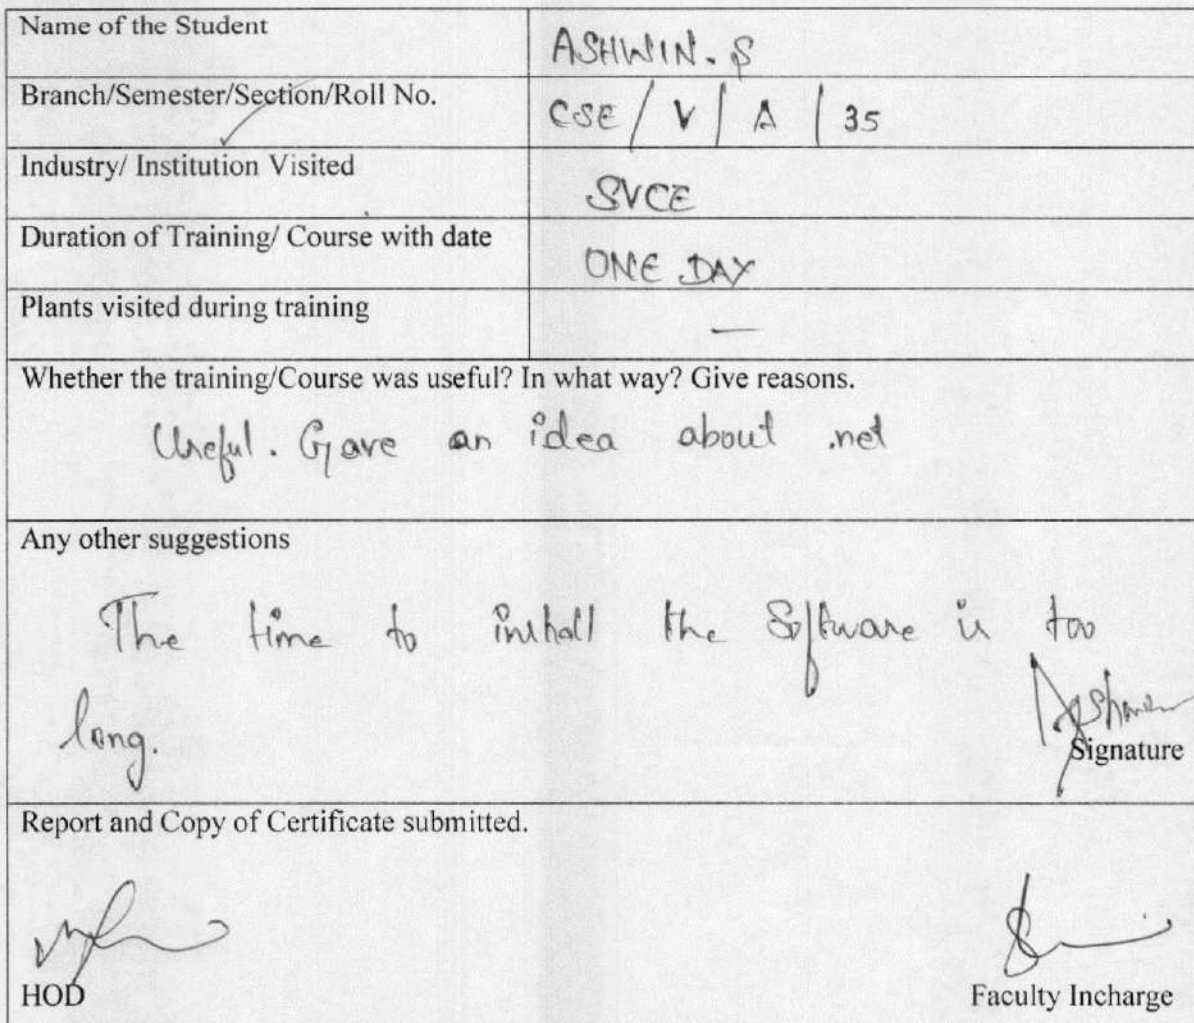 Name of the Student
ASHWIN. S
Branch/Semester/Section/Roll No.
CSE / V / A / 35
Industry/ Institution Visited
SVCE
Duration of Training/ Course with date
ONE DAY
Plants visited during training
—
Whether the training/Course was useful? In what way? Give reasons.
Useful. Gave an idea about .net
Any other suggestions
The time to install the Software is too
long.
Signature
Report and Copy of Certificate submitted.
HOD
Faculty Incharge